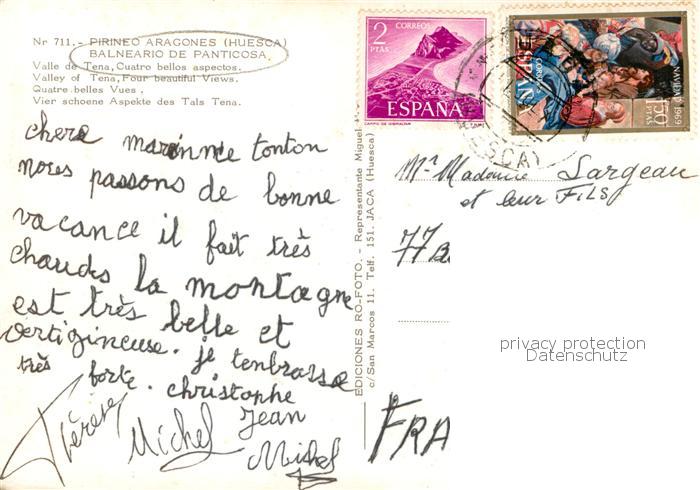 Nr 711.- PIRINEO ARAGONES (HUESCA)
BALNEARIO DE PANTICOSA
Valle de Tena, Cuatro bellos aspectos.
Valley of Tena, Four beautiful Views.
Quatre belles Vues.
Vier schoene Aspekte des Tals Tena.
chere marinnie tonton
nous passons de bonne
vacance il fait très
chaudes la montagne
est très belle et
vertigineuse. je tenbrasse
très forte. christophe
Thérèse Michel Jean
Michel
EDICIONES RO-FOTO. - Representante Miguel
c/San Marcos 11. Telf. 151. JACA (Huesca)
2 PTAS
CORREOS
ESPAÑA
CAMPO DE GIBRALTAR
ESPAÑA
CORREOS
NAVIDAD 1969
1'50 PTAS
ESCA)
Mr Madame Largeau
et leur FILS
77
FRA
privacy protection
Datenschutz